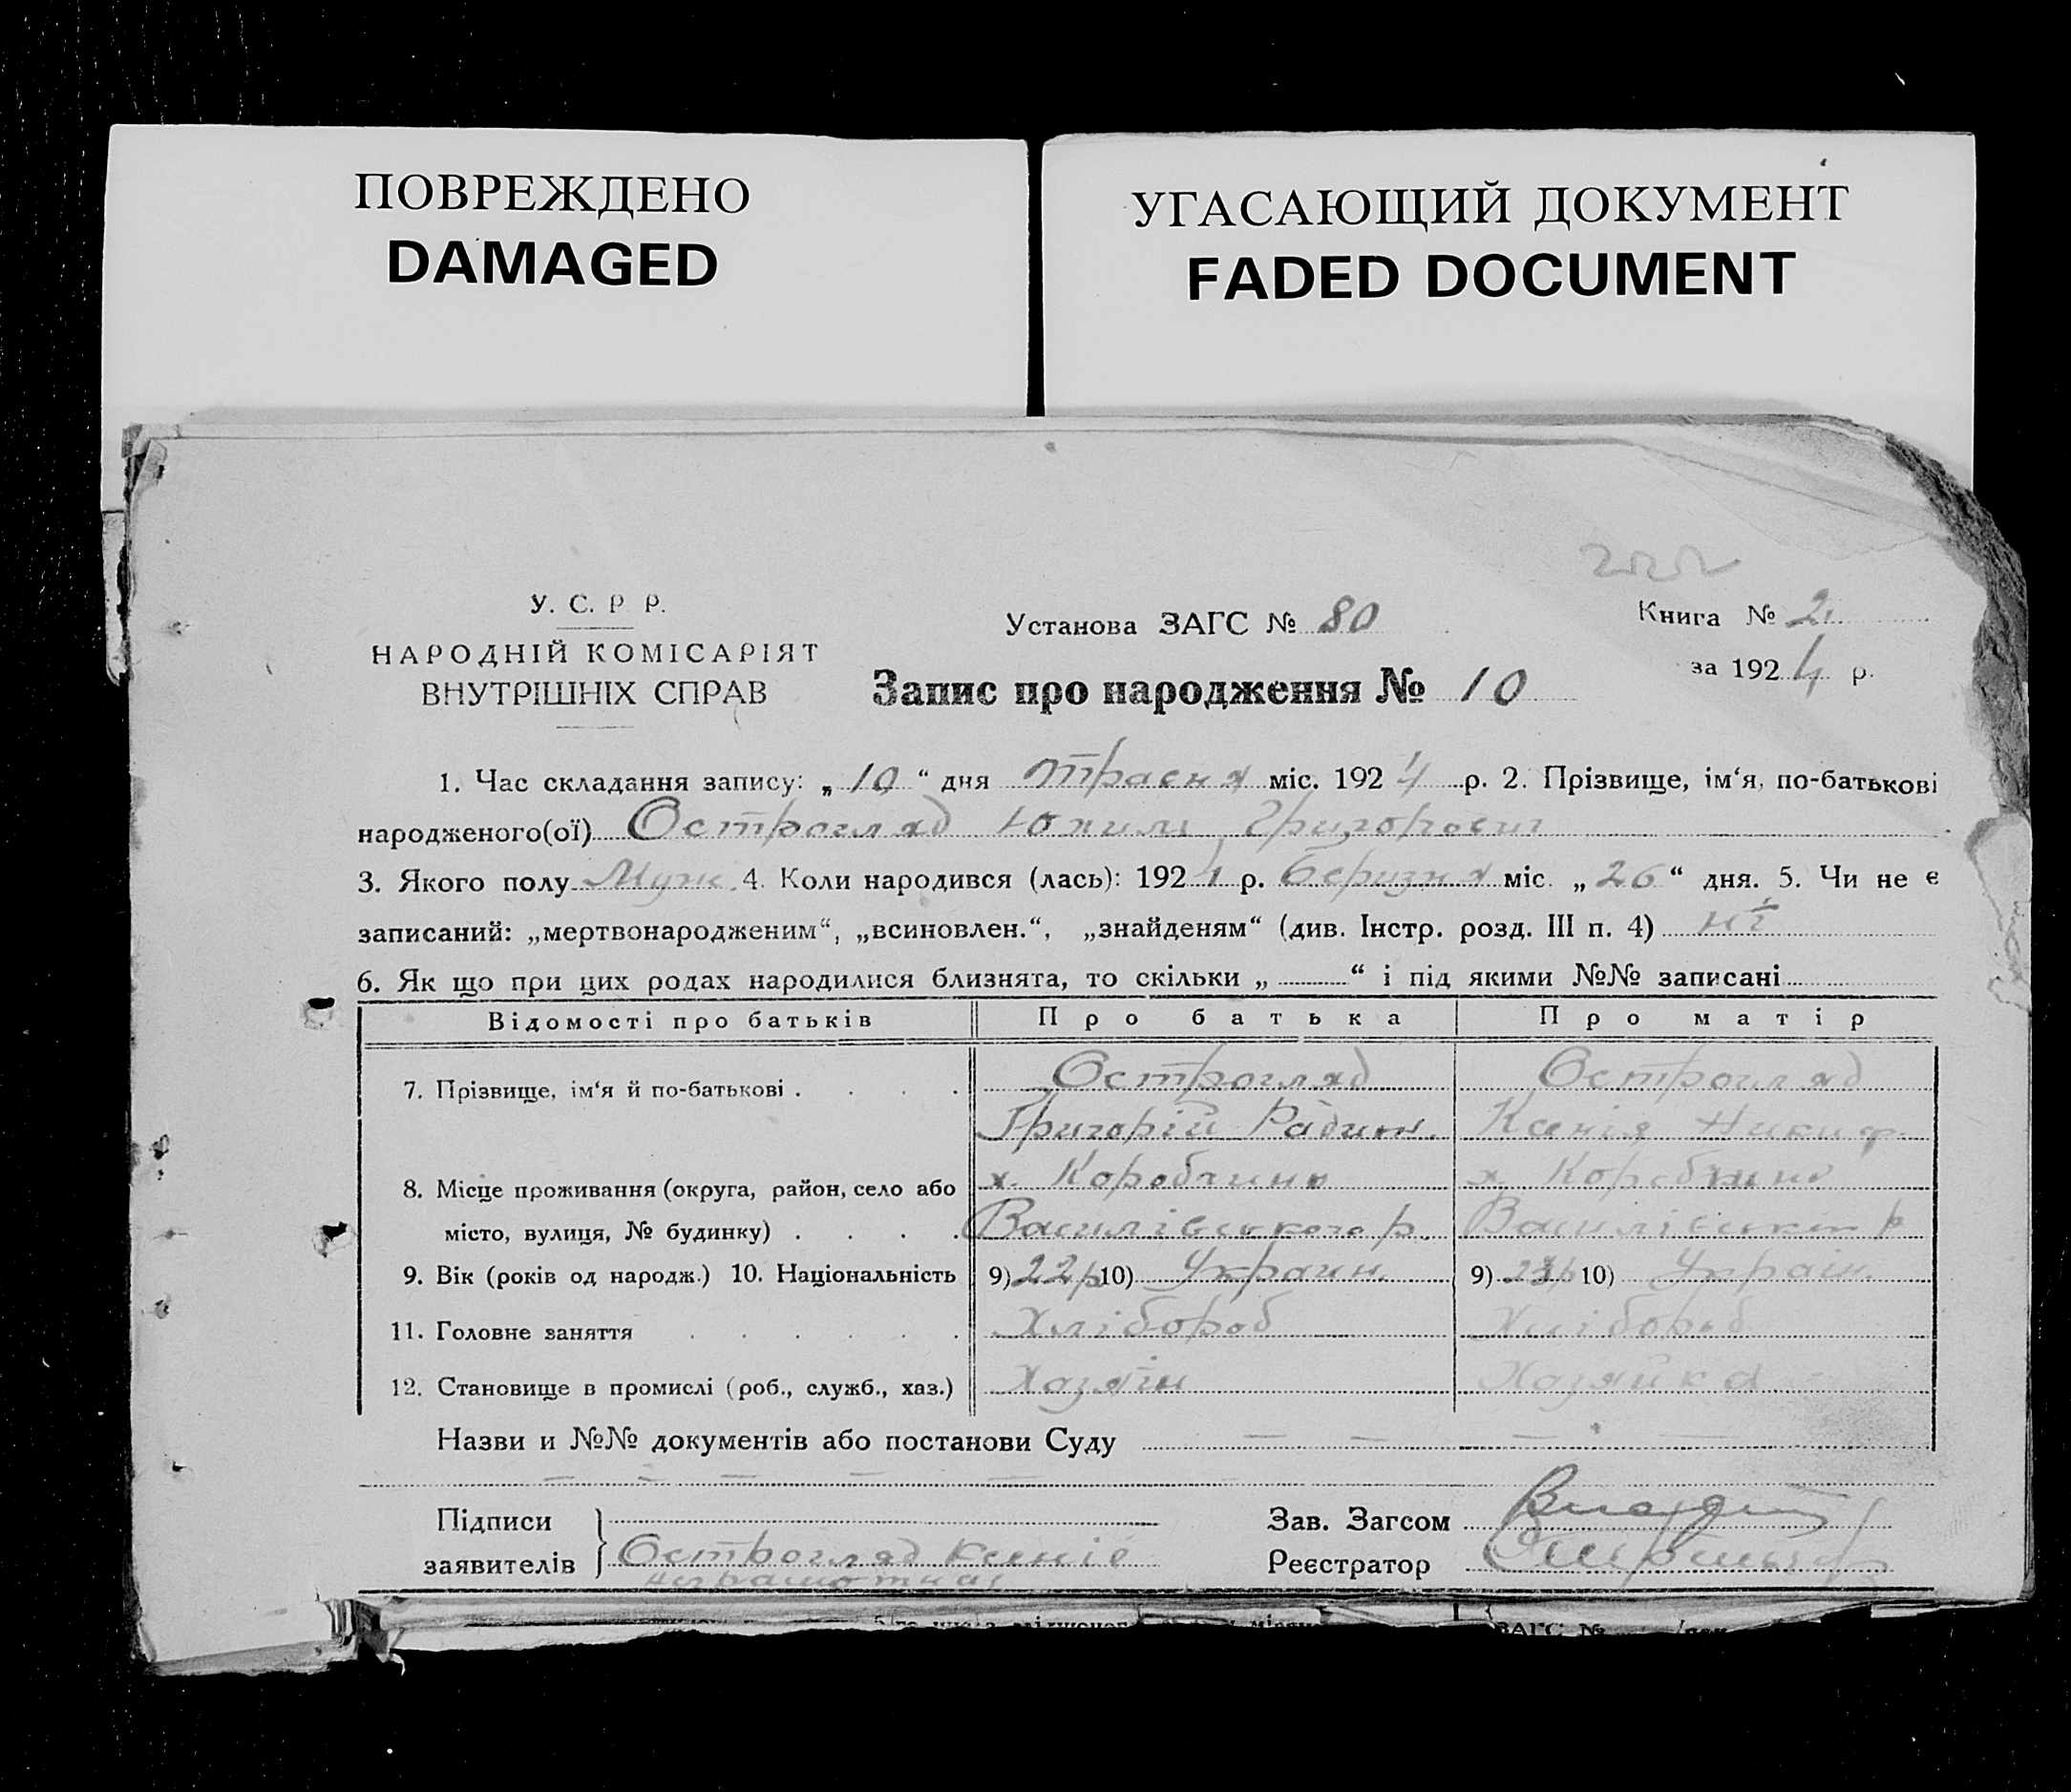 ПОВРЕЖДЕНО
DAMAGED
УГАСАЮЩИЙ ДОКУМЕНТ
FADED DOCUMENT
222
У. С. Р Р.
НАРОДНІЙ КОМІСАРІЯТ
ВНУТРІШНІХ СПРАВ
Установа ЗАГС № 80
Запис про народження № 10
Книга № 2
за 1924 р.
1. Час складання запису: „ 10 “ дня Траєня міс. 1924 р. 2. Прізвище, ім‘я, по-батькові
народженого(ої) Остроглад Григорович
3. Якого полу Муж. 4. Коли народився (лась): 1924 р. Беризня міс. „ 26 “ дня. 5. Чи не є
записаний: „мертвонародженим“, „всиновлен.“, „знайденям“ (див. Інстр. розд. III п. 4) ні
6. Як що при цих родах народилися близнята, то скільки „ “ і під якими №№ записані
Відомості про батьків Про батька Про матір
7. Прізвище, ім‘я й по-батькові Остроглад Остроглад
Григорій Ксенія Никиф.
8. Місце проживання (округа, район, село або х. Коробчино х. Коробчино
місто, вулиця, № будинку) Василівського р. Василівськ р
9. Вік (років од народж.) 10. Національність 9) 22р 10) Украин. 9) 23р 10) Україн.
11. Головне заняття Хлібороб Хлібороб
12. Становище в промислі (роб., служб., хаз.) Хазяїн Хазяйка
Назви и №№ документів або постанови Суду — — — —
— — — — —
Підписи
заявителів Остроглад Ксенія
неграмотная
Зав. Загсом
Реєстратор